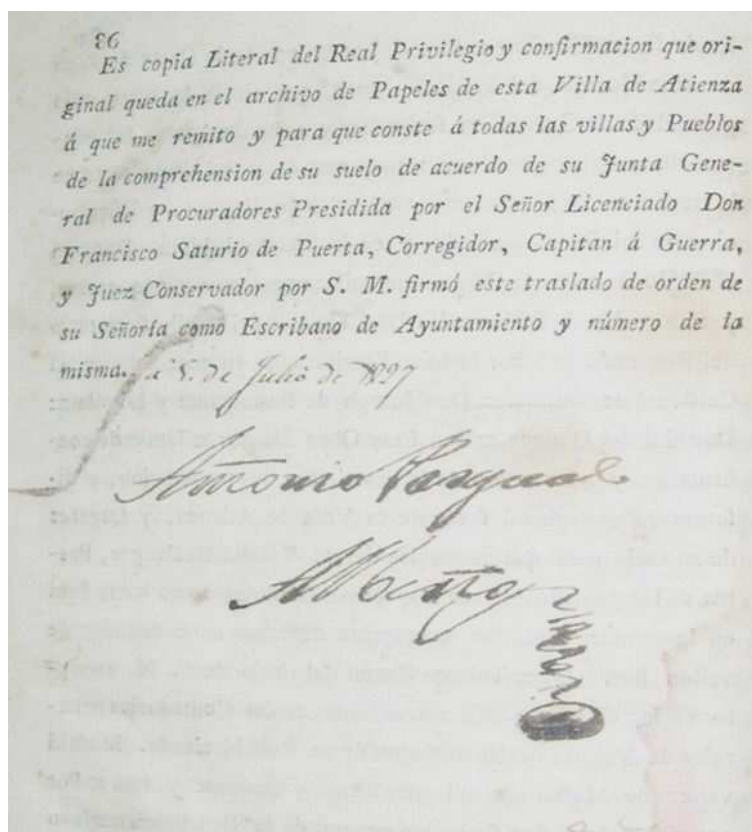 36
Es copia Literal del Real Privilegio y confirmacion que ori-
ginal queda en el archivo de Papeles de esta Villa de Atienza
á que me remito y para que conste á todas las villas y Pueblos
de la comprehension de su suelo de acuerdo de su Junta Gene-
ral de Procuradores Presidida por el Señor Licenciado Don
Francisco Saturio de Puerta, Corregidor, Capitan á Guerra,
y Juez Conservador por S. M. firmó este traslado de orden de
su Señoría como Escribano de Ayuntamiento y número de la
misma. de Julio de
Antonio Pasqual